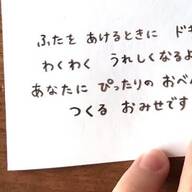 ふたを あけるときに ド
わくわく うれしくなるよ
あなたに ぴったりの おべ
つくる おみせです